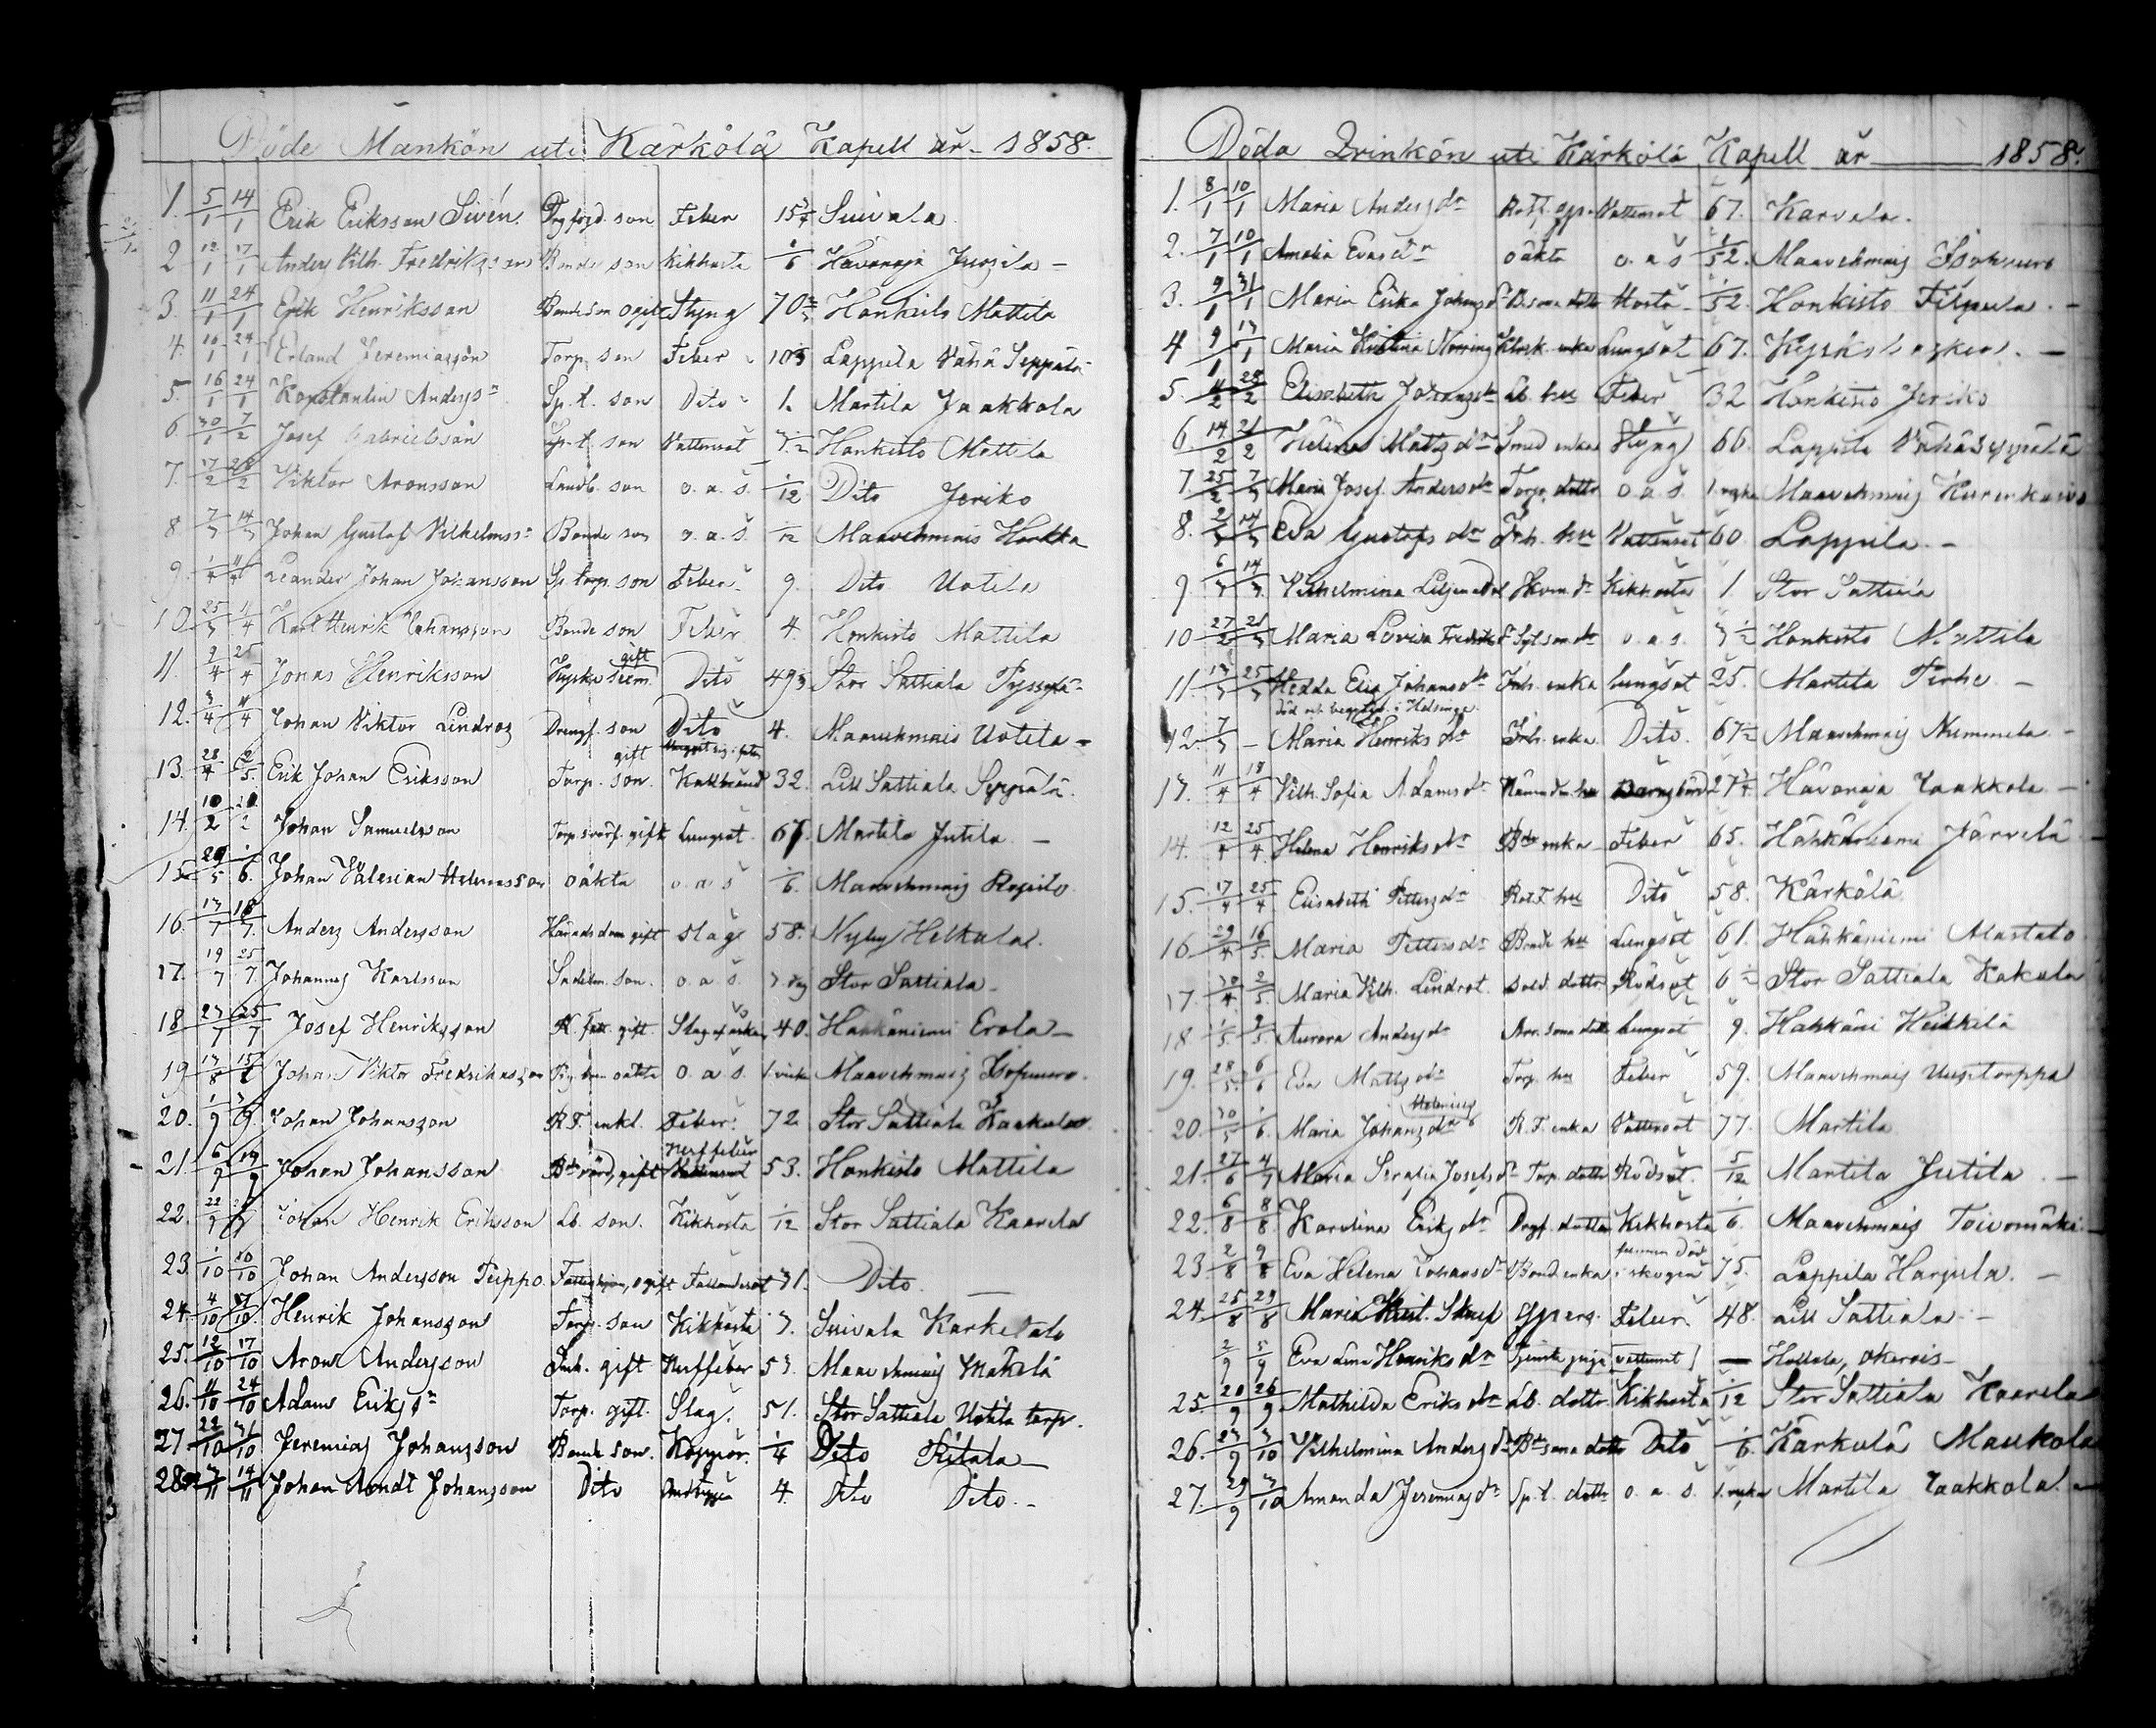 Döde Mankön uti Kärkölä Kapell år 1858.
1. 5/1 14/1 Erik Eriksson Sivén. son Feber 15 Suivala
2 12/1 17/1 Anders Vilh. Fredriksson Bonde son Kikhosta 1/6 Hävonoja Jussila –
3. 11/1 24/1 Erik Henriksson Bonde son ogift Styng 70 Honkisto Mattila
4. 16/1 24/1 Erland Jeremiasson Torp. son Feber 10 Lappila Vähä Seppälä
5. 16/1 24/1 Konstantin Anders n Sp. t. son Dito 1. Martila Jaakkola
6. 30/1 7/2 Josef Gabrielsson Sp. t. son Vattensot Honkisto Mattila
7. 17/2 28/2 Viktor Aronsson Landb. son o. a. s. 1/12 Dito Jeriko
8 7/3 14/3 Johan Gustaf Vilhelmss n Bonde son o. a. s. 1/12 Maavehmais Honkka
9. 1/4 11/4 Leander Johan Johansson Sp. torp. son Feber 9. Dito Uotila
10. 25/3 11/4 Karl Henrik Johansson Bonde son Feber 4. Honkisto Mattila
11. 9/4 25/4 Jonas Henriksson gift Dito 49 Stor Sattiala
12. 3/4 11/4 Johan Viktor Lindros Drengf. son Dito 4. Maavehmais Uotila –
13. 28/4 2/5. Erik Johan Eriksson Torp. son. gift Kallbrand 32. Lill Sattiala Seppälä.
14. 10/2 20/2 Johan Samuelsson Torp. svärf. gift Lungsot. 67. Martila Jutila –
15. 29/5 1/6. Johan Valerian Helenasson oäkta o. a. s 1/6. Maavehmais
16. 13/7 18/7. Anders Andersson Härads dom gift Slag 58. Nyby Heikula.
17. 19/7 25/7 Johannes Karlsson son. o. a. s. 3. dag Stor Sattiala
18 23/7 25/7 Josef Henriksson gift. Slag 40. Hähkäniemi Erola –
19 13/8 15/8 Johan Viktor Fredrikasson oäkta o. a. s. 1 vicka Maavehmais Isopuuro.
20. 1/9 5/9. Johan Johansson R. F. enkl. Feber. 72 Stor Sattiala Kaakula.
21. 6/9 19/9 Johan Johansson Bde värd, gift Nerffeber 53. Honkisto Mattila
22. 22/9 Johan Henrik Eriksson Lb. son. Kikhosta 1/12 Stor Sattiala Kaarela
23. 1/10 10/10 Johan Andersson Teippo. Fattighjon, ogift Fallandesot 31. Dito –
24. 4/10 17/10. Henrik Johansson Torp. son Kikhosta 3. Suivala Karketalo
25. 12/10 17/10 Aron Andersson Inh. gift Nerffeber 53. Maavehmais Mäkelä
26. 11/10 24/10 Adam Eriks n Torp. gift. Slag. 51. Stor Sattiala Uotila torp.
27 22/10 31/10 Jeremias Johansson Bonde son. Koppor. 1/4 Dito Pietala –
28. 3/11 14/11 Johan Arndt Johansson Dito Andtäppa 4. Dito Dito. –
Döda Qvinkön uti Kärkölä Kapell år 1858.
1. 8/1 10/1 Maria Anders dr Vattensot 67. Karvala.
2. 7/1 10/1 Amalia Evas dr oäkta o. a. s 1/52. Maavehmais Isopuuro
3. 9/1 31/1 Maria Erika Johans dr B. sons dotter Hosta 1/52. Honkisto Filpula. –
4 9/1 17/1 Maria Kristina Norring Klock. enka Lungsot 67. –
5. 4/2 28/2 Elisabeth Johans dr Lb. hu Feber 32 Honkisto Jeriko
6. 14/2 21/2 Helena Matts dr Smed enka Styng 66. Lappila Vähäseppälä
7. 25/2 7/3 Maria Josef. Anders dr Torp. dotter o. a. s. Maavehmais Kurenkaivo
8. 2/3 14/3 Eva Gustafs dr Inh. hu Vattensot 60. Lappila –
9. 6/3 14/3. Vilhelmina Liljendal dr Kikhosta 1 Stor Sattiala
10 27/2 21/3 Maria Lovisa dr o. a. s. Honkisto Mattila
11. 13/3 25/3 Hedda Elis. Johans dr Inh. enka Lungsot 25. Martila Pirhe –
död och begrafven i Helsinge.
12. 7/3 – Maria Henriks dr Inh. enka. Dito. 67 Maavehmais Nummela –
13. 11/4 18/4 Vilh. Sofia Adams dr Barnsbörd 27 Hävonoja Jaakkola –
14. 12/4 25/4. Helena Henriks dr Bde enka Feber 65. Hähkäniemi Järvelä –
15. 17/4 25/4 Elisabeth Petters dr Rot. F. hu Dito 58. Kärkölä
16. 29/4 16/5. Maria Petters dr Bonde hu Lungsot 61. Hähkäniemi Mattala
17. 30/4 2/5. Maria Vilh. Lindrot. Sold. dotter Rödsot 6 Stor Sattiala Kakula
18. 1/5. 9/5. Aurora Anders dr dotter Lungsot 9. Hähkäni Heikkilä
19. 28/5. 6/6 Eva Matts dr Torp. hu Feber 59. Maavehmais Uusitorppa
20. 30/5 6. Maria Johans dr R. F. enka Vattensot 77. Martila
21. 27/6 4/7 Maria Serafia Josefs dr Torp. dotter Rödsot. 5/12 Martila Jutila –
22. 6/8 8/8. Karolina Eriks dr Dregf. dotter Kikhosta 1/6. Maavehmais Toivomäki –
23. 2/8 9/8 Eva Helena Johans dr Bond enka funnen död i skogen 75. Lappila Harjula. –
24. 25/8 29/8 Maria Krist. Feber. 48. Lill Sattiala –
2/9 5/9 Eva Lena Henriks dr Tjenste piga Vattensot – Hollola, Okerois –
25. 20/9 26/9 Mathilda Eriks dr Lb. dotter Kikhosta 1/12 Stor Sattiala Kaarela
26. 23/9 3/10 Vilhelmina Anders dr Bde sons dotter Dito 1/6. Kärkölä Maukola
27. 29/9 3/10 Amanda Jeremias dr Sp. t. dotter o. a. s. Martila Jaakkola. –